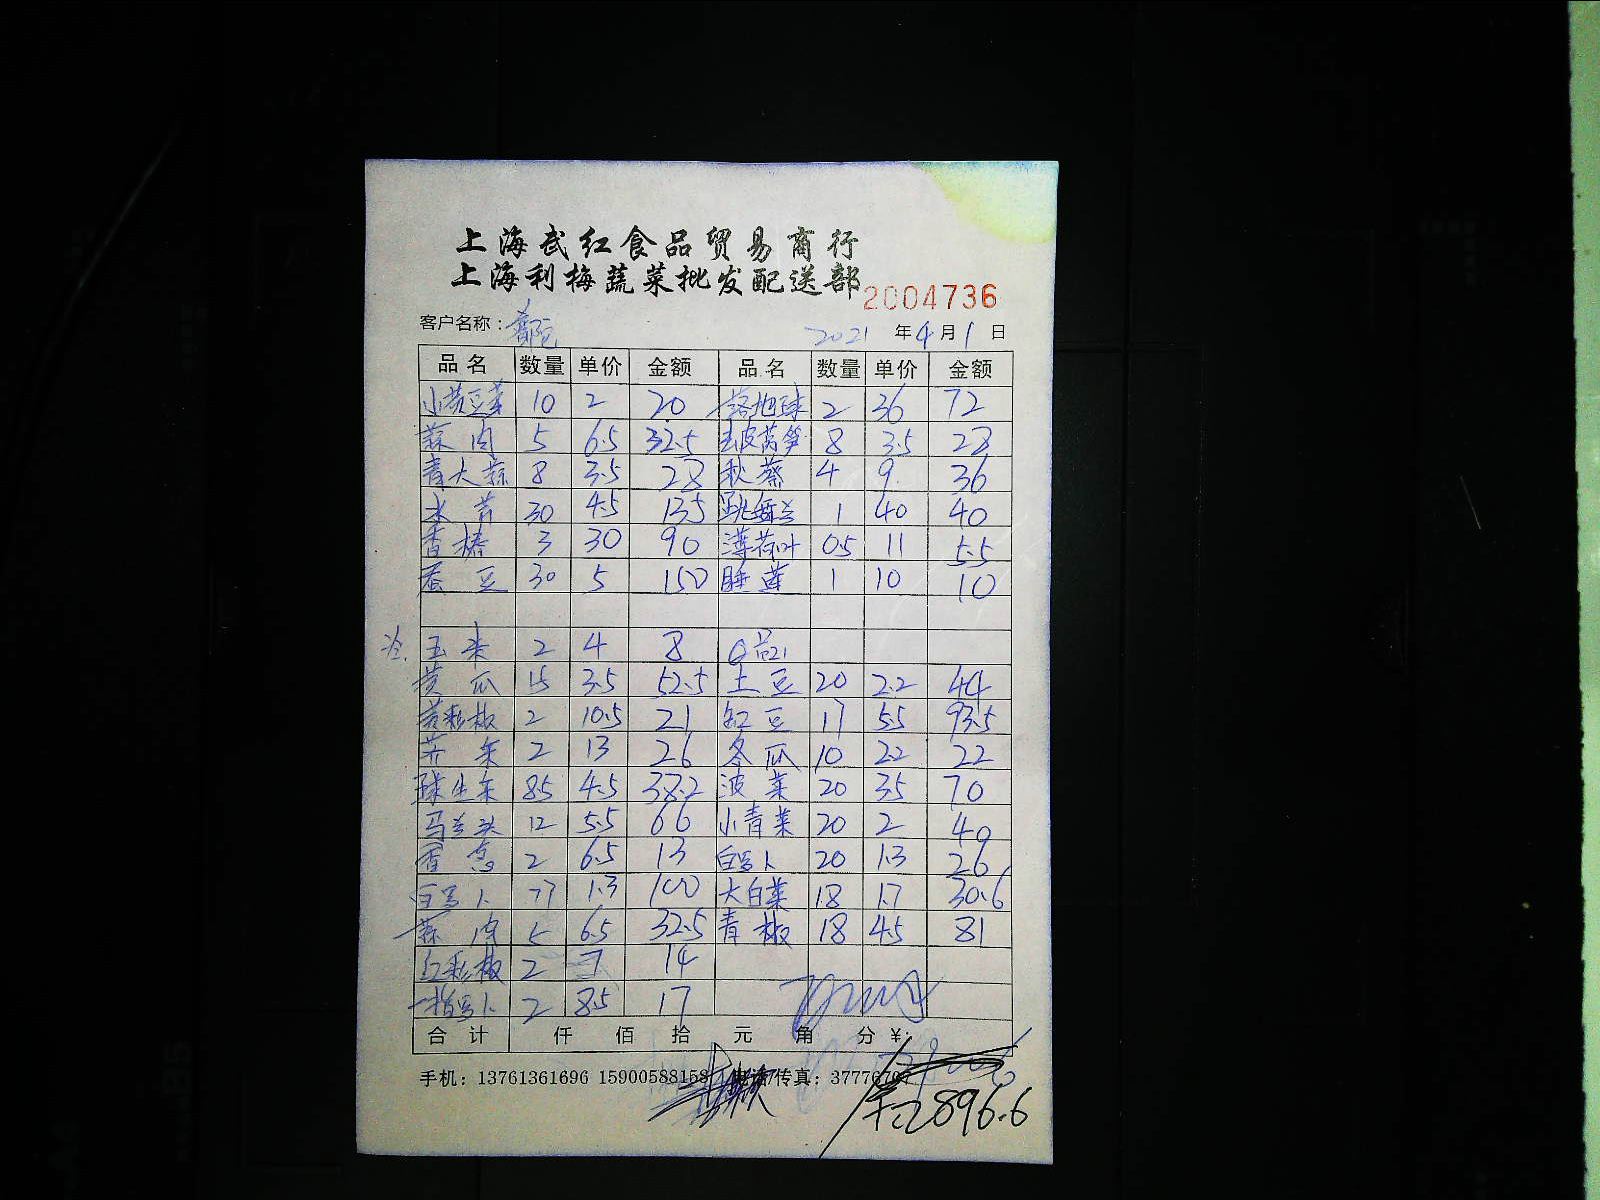 上海武红食品贸易商行
上海利梅蔬菜批发配送部
2004736
客户名称：
2021 年 4 月 1 日
品名 数量 单价 金额 品名 数量 单价 金额
10 2 20 落地球 2 36 72
蒜肉 5 6.5 32.5 莴笋 8 3.5 28
青大蒜 8 3.5 28 秋葵 4 9 36
水芹 30 4.5 135 跳舞兰 1 40 40
香椿 3 30 90 薄荷叶 0.5 11 5.5
蚕豆 30 5 150 睡莲 1 10 10
玉米 2 4 8
黄瓜 15 3.5 52.5 土豆 20 2.2 44
黄彩椒 2 10.5 21 豇豆 17 5.5 93.5
芥菜 2 13 26 冬瓜 10 2.2 22
球生菜 8.5 4.5 38.2 波菜 20 3.5 70
马兰头 12 5.5 66 小青菜 20 2 40
香葱 2 6.5 13 白罗卜 20 1.3 26
白罗卜 77 1.3 100 大白菜 18 1.7 30.6
蒜肉 5 6.5 32.5 青椒 18 4.5 81
红彩椒 2 7 14
指罗卜 2 8.5 17
合计 仟 佰 拾 元 角 分 ¥：
手机：13761361696 15900588158 电话/传真：37776797
2896.6